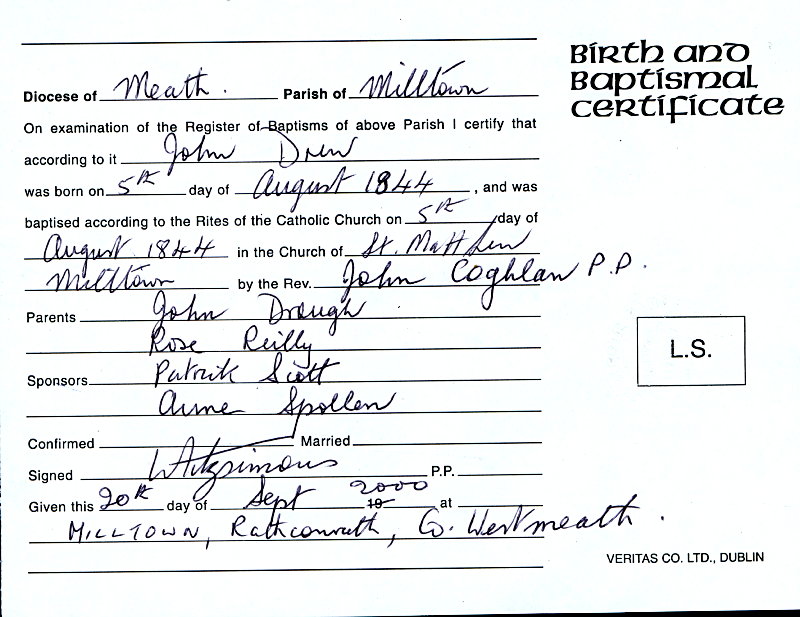 Birth and
Baptismal
Certificate
Diocese of Meath. Parish of Milltown
On examination of the Register of Baptisms of above Parish I certify that
according to it John Drew
was born on 5th day of August 1844, and was
baptised according to the Rites of the Catholic Church on 5th day of
August 1844 in the Church of St. Matthew
Milltown by the Rev. John Coghlan P.P.
Parents John Drough
Rose Reilly
L.S.
Sponsors Patrick Scott
Anne Spollen
Confirmed Married
Signed Fitzsimons P.P.
Given this 20th day of Sept 19 2000 at
MILLTOWN, Rathconrath, Co. Westmeath.
VERITAS CO. LTD., DUBLIN